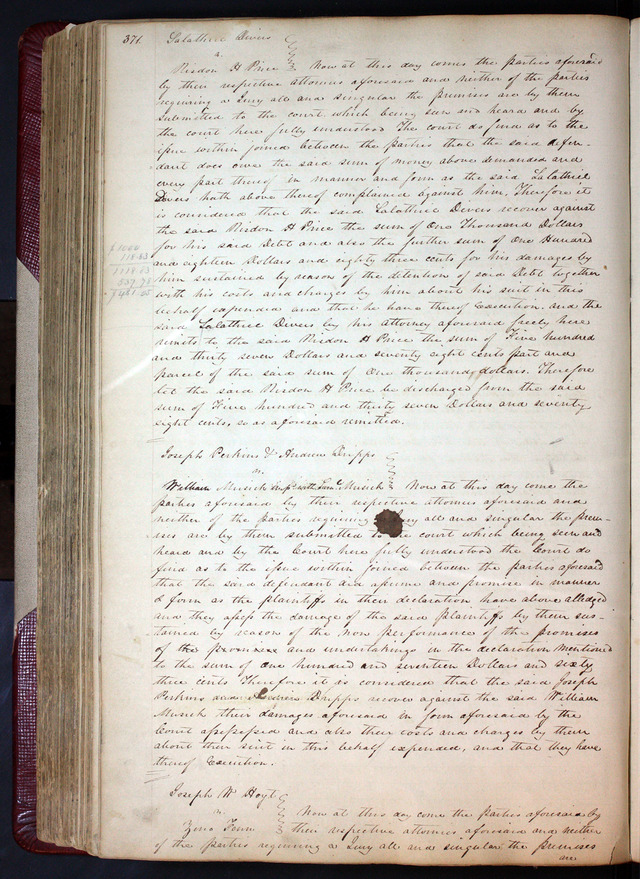 371.
Lalathiee Divers
v.
Risdon H Price } Now at this day comes the parties aforesaid
by their respective attornies aforesaid and neither of the parties
requiring a Jury all and singular the premises are by them
submitted to the court which being seen and heard and by
the court here fully understood The court do find as to the
issue within joined between the parties that the said defen-
dant does owe the said sum of money above demanded and
every part thereof in manner and form as the said Lalathiee
Divers hath above thereof complained against him. Therefore it
is considered that the said Lalathiee Divers recover against
the said Risdon H Price the sum of One Thousand Dollars
for his said Debt and also the further sum of One Hundred
and eighteen Dollars and eighty three cents for his damages by
him sustained by reason of the detention of said Debt together
with his costs and charges by him about his suit in this
behalf expended and that he have thereof Execution. and the
said Lalathiee Divers by his attorney aforesaid freely here
remits to the said Risdon H Price the sum of Five hundred
and thirty seven Dollars and seventy eight cents part and
parcel of the said sum of One thousand dollars. Therefore
let the said Risdon H Price be discharged from the said
sum of Five hundred and thirty seven Dollars and seventy
eight cents, so as aforesaid remitted.
$1000
118.83
1118.83
537.78
Joseph Perkins & Andrew Dripps
v.
William Musick Imp. with Musick } Now at this day come the
parties aforesaid by their respective attornies aforesaid and
neither of the parties requiring Jury all and singular the prem-
ises are by them submitted to the court which being seen and
heard and by the Court here fully understood the Court do
find as to the issue within joined between the parties aforesaid
that the said defendant did assume and promise in manner
& form as the plaintiffs in their declaration have above alledged
and they assess the damage of the said plaintiffs by them sus-
tained by reason of the non performance of the promises
of the promises and undertakings in the declaration mentioned
to the sum of One hundred and seventeen Dollars and sixty
three cents Therefore it is considered that the said Joseph
Perkins and Dripps recover against the said William
Musick their damages aforesaid in form aforesaid by the
Court assessed and also their costs and charges by them
about their suit in this behalf expended, and that they have
thereof Execution.
Joseph W Hoyt
v.
Zeno Fenn } Now at this day come the parties aforesaid by
their respective attornies aforesaid and neither
of the parties requiring a Jury all and singular the premises
are